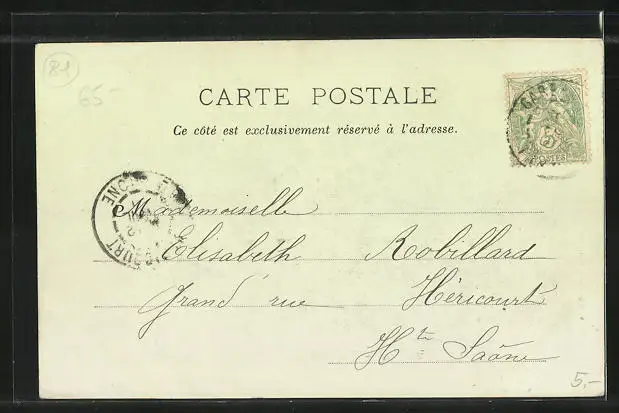 81
65-
CARTE POSTALE
Ce côté est exclusivement réservé à l'adresse.
POSTES
Mademoiselle
Elisabeth Robillard
Grand' rue Héricourt
Hte Saône
5,-